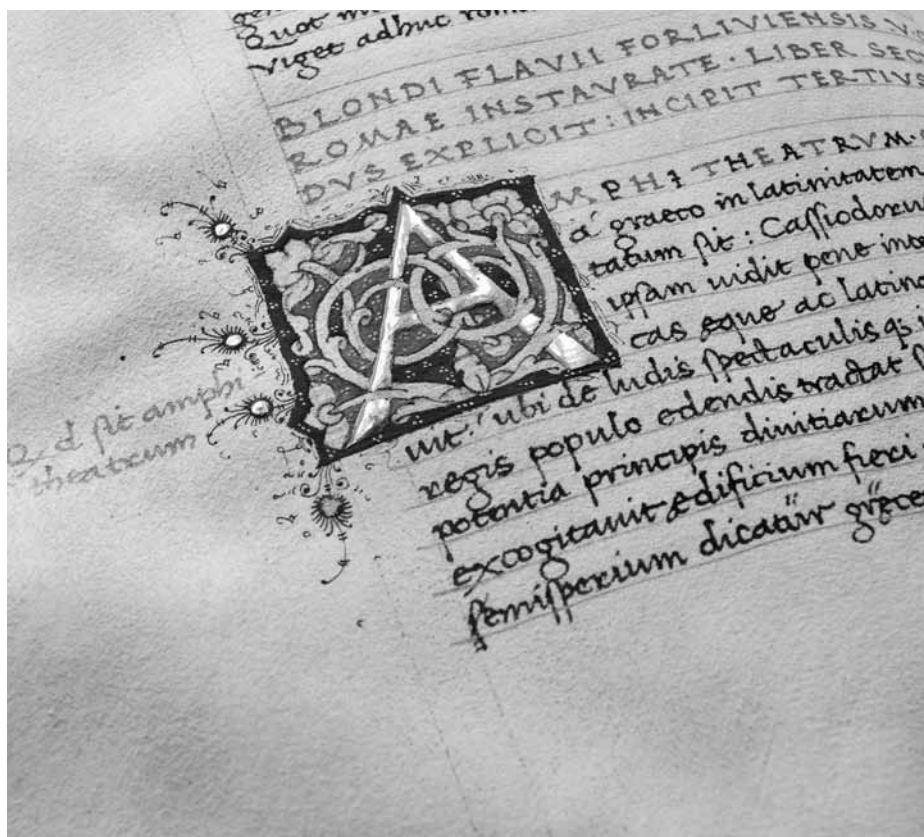 Quot
viget adhuc
BLONDI FLAVII FORLIVIENSIS
ROMAE INSTAVRATE · LIBER SEC
DVS EXPLICIT : INCIPIT TERTIVS
AMPHITHEATRVM ·
á graeco in latinitatem
tatum sit : Cassiodoru
ipsam uidit pene
cas eque ac latin
uit : ubi de ludis spectaculis q3
regis populo edendis tractat
potentia principis diuitiarum
excogitauit edificium fieri
semisperium dicatur
Q d sit amphi
theatrum